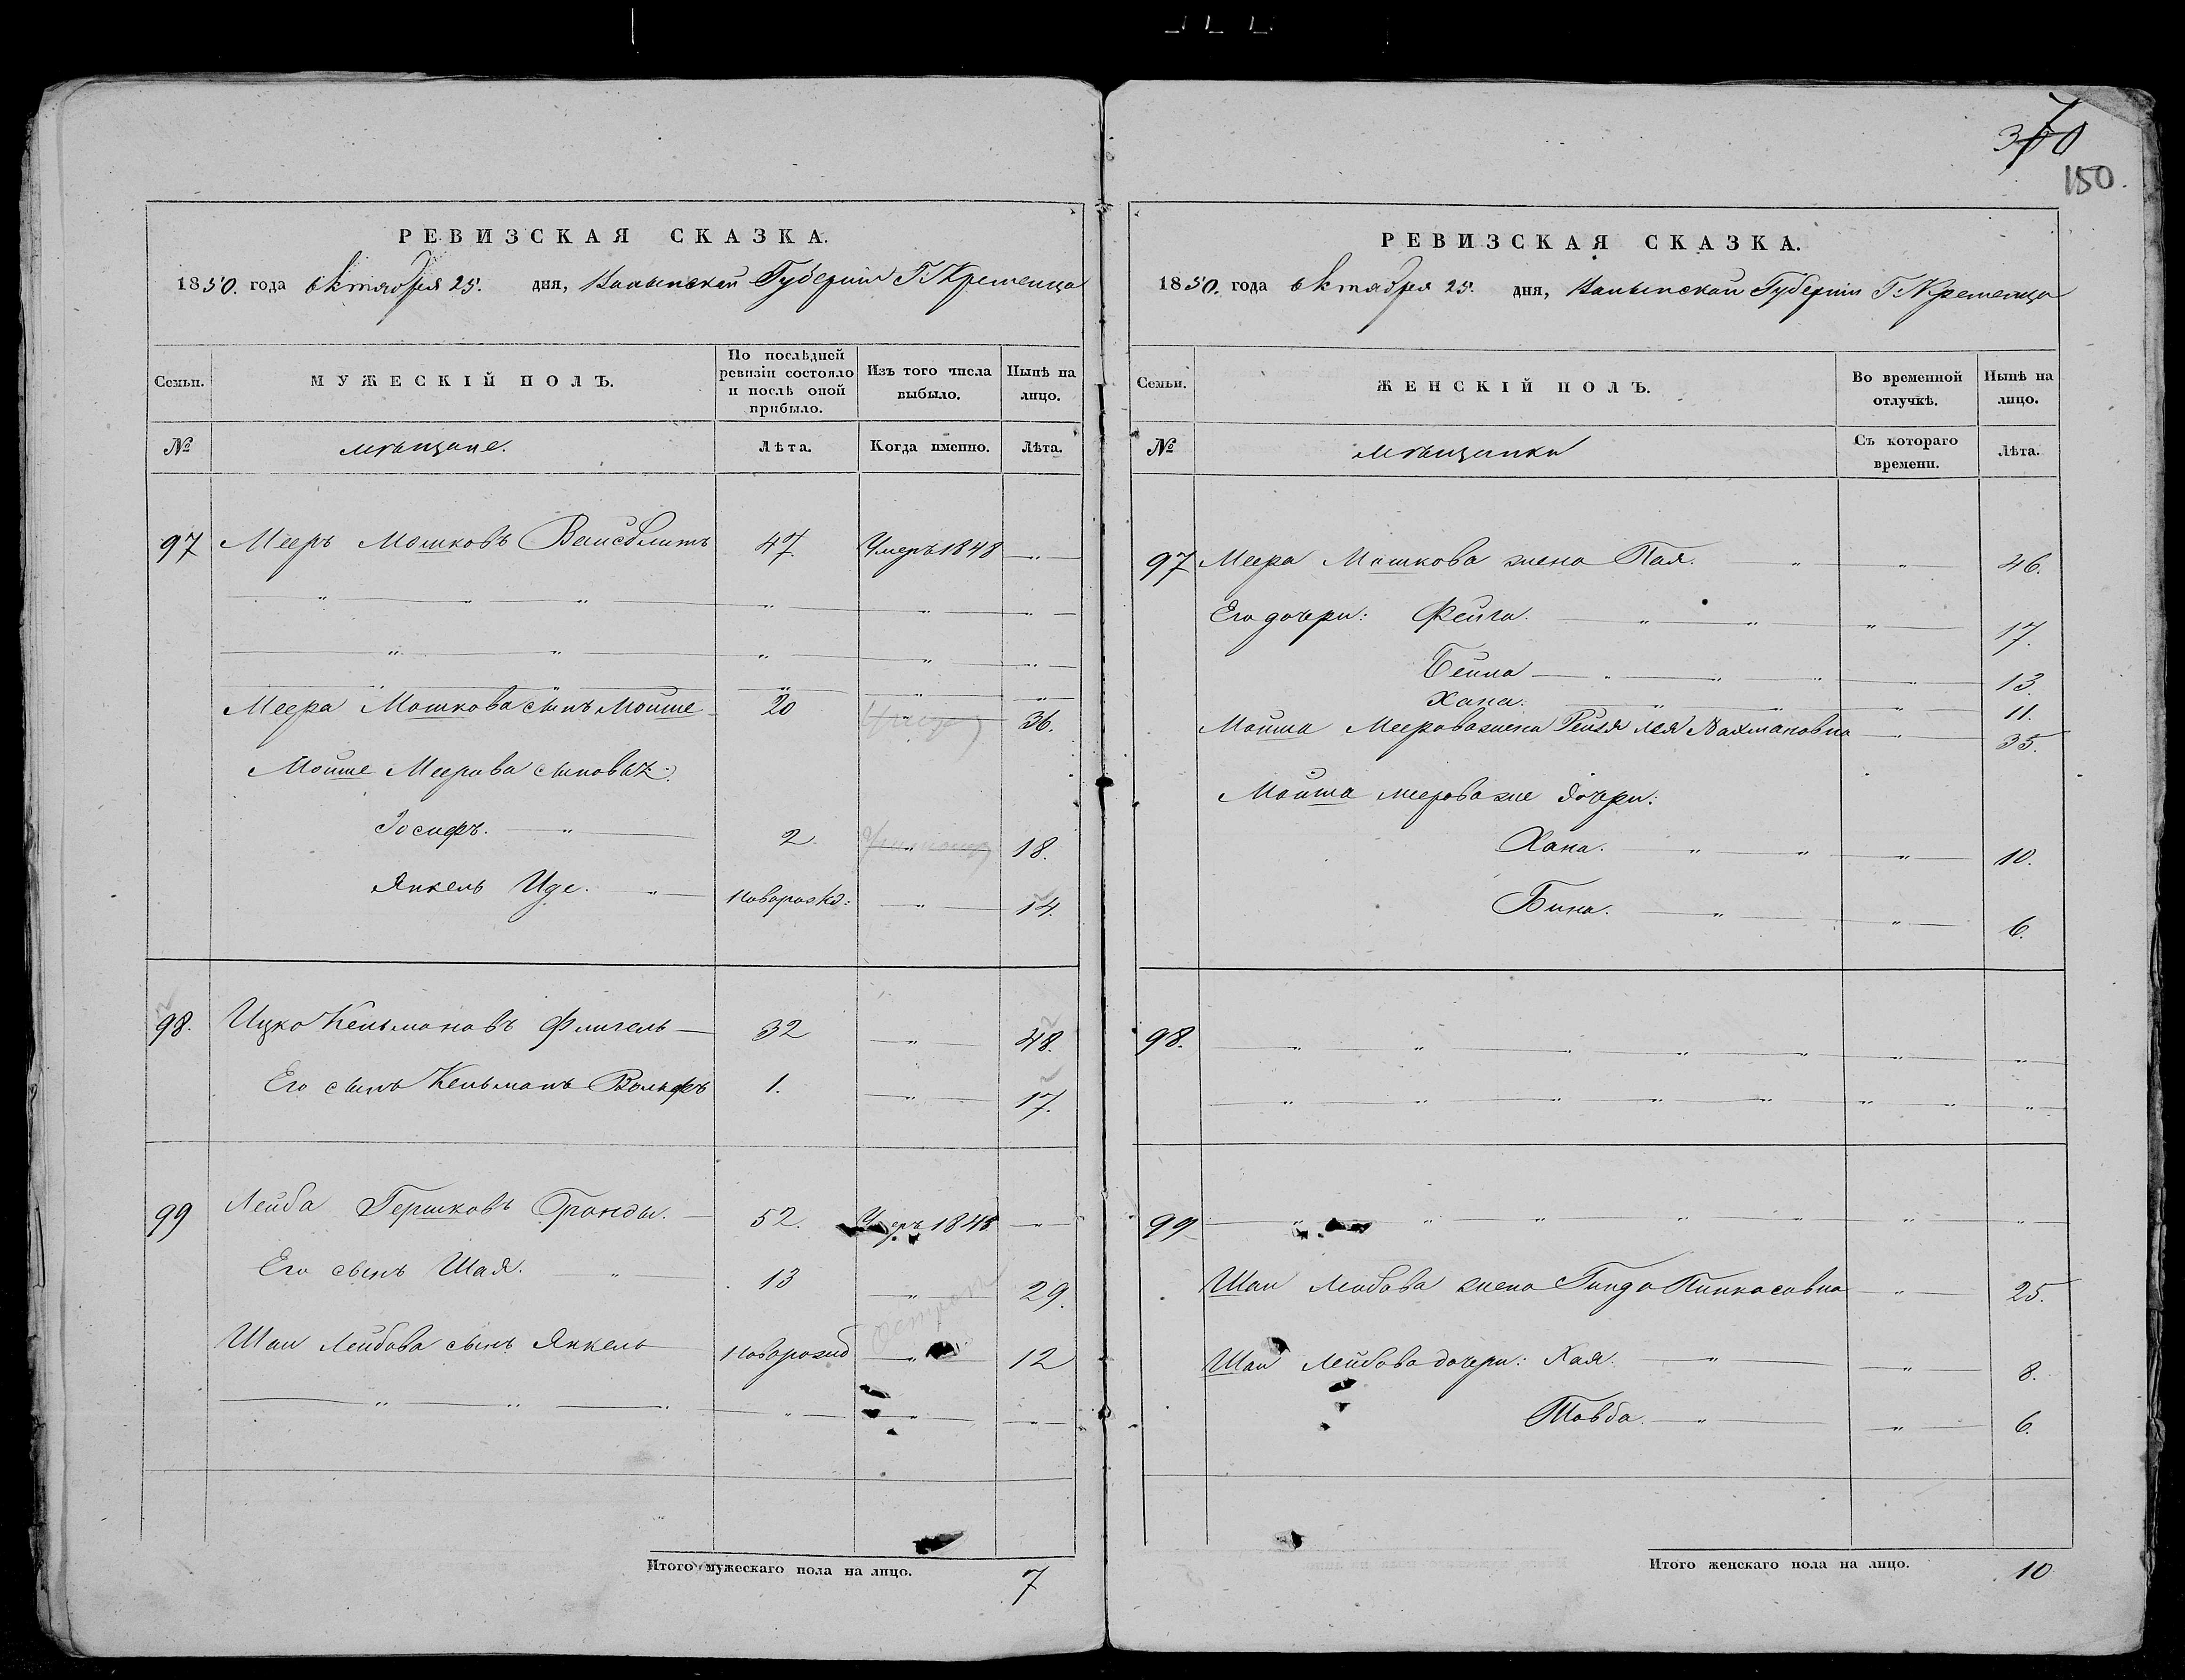 370
150.
РЕВИЗСКАЯ СКАЗКА.
1850. года октября 25. дня, Волынской Губернии Г: Кременца
Семьи. МУЖЕСКІЙ ПОЛЪ. По послѣдней ревизіи состояло и послѣ оной прибыло. Изъ того числа выбыло. Нынѣ на лицо.
№ мѣщане. Лѣта. Когда именно. Лѣта.
97 Мееръ Мошковъ 47. Умеръ 1848 — " —
Меера Мошкова сынъ Мойше 20 36.
Мойше Меерова сыновья:
Іосифъ. — " — 2. — " — 18.
Янкель Иде. — " — новорожд: — " — 14.
98. Ицко Кельмановъ Флигель — 32 — " — 48.
Его сынъ Кельманъ Вольфъ 1. — " — 17.
99 Лейба Гершковъ 52. Умеръ 1848 — " —
Его сынъ Шая. — " — 13 — " — 29.
Шаи Лейбова сынъ Янкель новорожд — " — 12
Итого мужескаго пола на лицо. 7
РЕВИЗСКАЯ СКАЗКА.
1850. года октября 25. дня, Волынской Губернии Г: Кременца
Семьи. ЖЕНСКІЙ ПОЛЪ. Во временной отлучкѣ. Нынѣ на лицо.
№ мѣщанки Съ котораго времени. Лѣта.
97 Меера Мошкова жена Пая. — " — " — 46.
Его дочери: Фейга. — " — " — " — 17.
Бейла — " — " — " — 13
Хана. — " — " — " — 11.
Мойша Меерова жена Рейзя Лея Нахмановна — " — 35.
Мойша Меерова же дочери:
Хана. — " — " — " — 10.
Бина. — " — " — 6.
98. — " — " — " — " — " — " — " —
99 — " — " — " — " — " — " — " —
Шаи Лейбова жена Гинда Пинкасовна — " — 25.
Шаи Лейбова дочери: Хая. — " — " — 8.
Товба. — " — " — 6.
Итого женскаго пола на лицо. 10